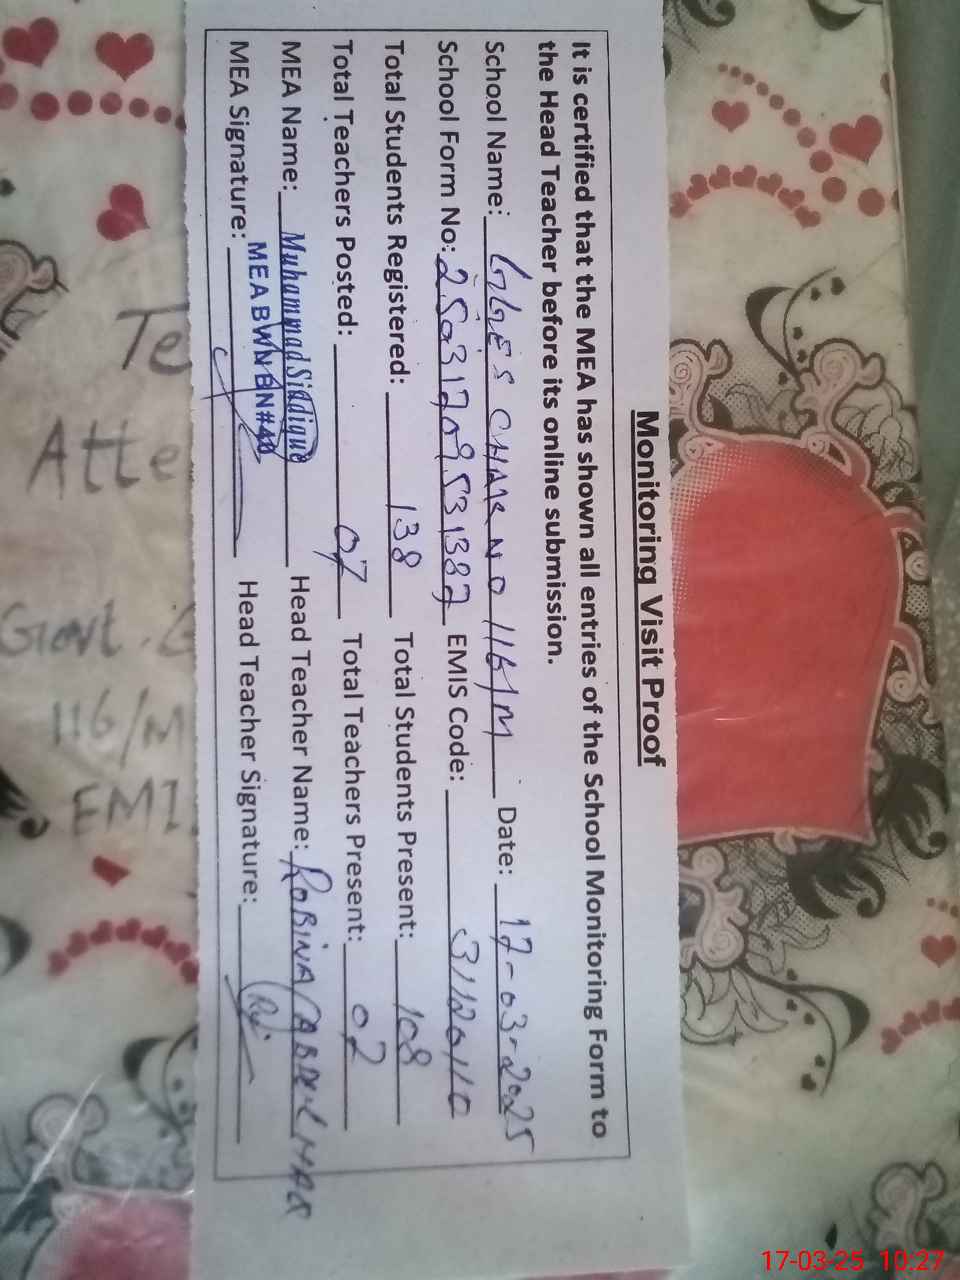 Monitoring Visit Proof
It is certified that the MEA has shown all entries of the School Monitoring Form to
the Head Teacher before its online submission.
School Name: GGES CHAK NO 116/M Date: 17-03-2025
School Form No: EMIS Code: 31120110
Total Students Registered: 138 Total Students Present: 108
Total Teachers Posted: 07 Total Teachers Present: 07
MEA Name: Muhammad Siddique Head Teacher Name: ROBINA
MEA BWN BN#40
MEA Signature: Head Teacher Signature:
Te
Atte
Govt. G
116/M
EMI
17-03-25 10:27